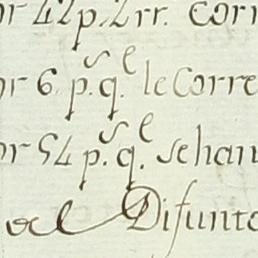 or 42 p.s 2 rr. Corr
or 6 p.s q.e le Corre
or 54 p.s q.e se han
al Difunto